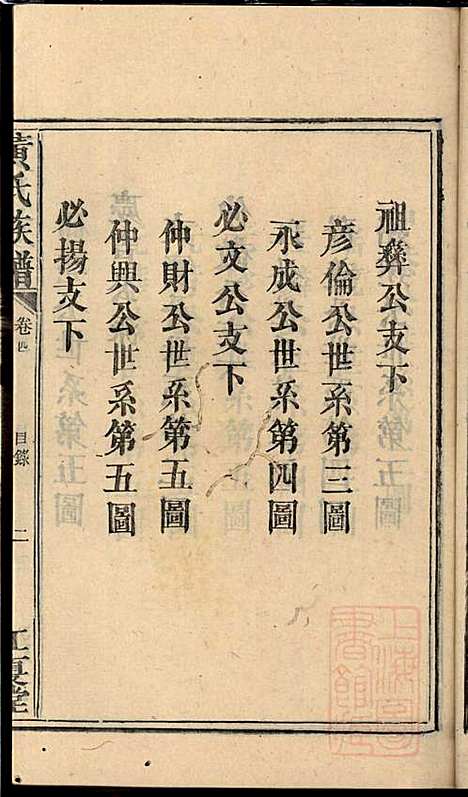 祖彝公支下
彥倫公世系第三圖
永成公世系第四圖
必文公支下
仲財公世系第五圖
仲興公世系第五圖
必揚支下
黃氏族譜
卷四
目錄
二
江夏堂
上海圖書館藏